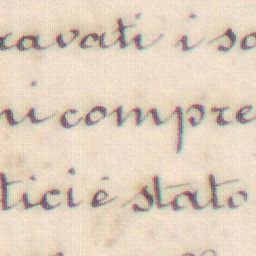 ravati i so
ni compre
tici è stato